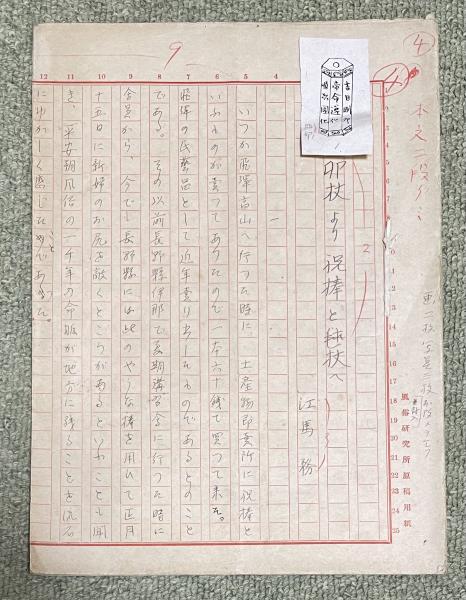 ④
本文二段
風俗研究所原稿用紙
卯杖より祝棒と毬杖へ
2
江馬務
一
いつか飛騨高山へ行つた時に、土産物即賣所に祝棒と
いふものが賣つてあつたので一本六十銭で買つて来た。
飛騨の民藝品として近年賣り出したものであるとのこと
である。その以前長野縣伊那で夏期講習会に行つた時に
会員から、今でも長野縣には此のやうな棒を用ひて正月
十五日に新婦のお尻を敲くところがあるといふことも聞
き、平安朝風俗の一千年の命脈が地方に残ることを流石
にゆかしく感じたことであつた。
9
12 11 10 9 8 7 6 5 4